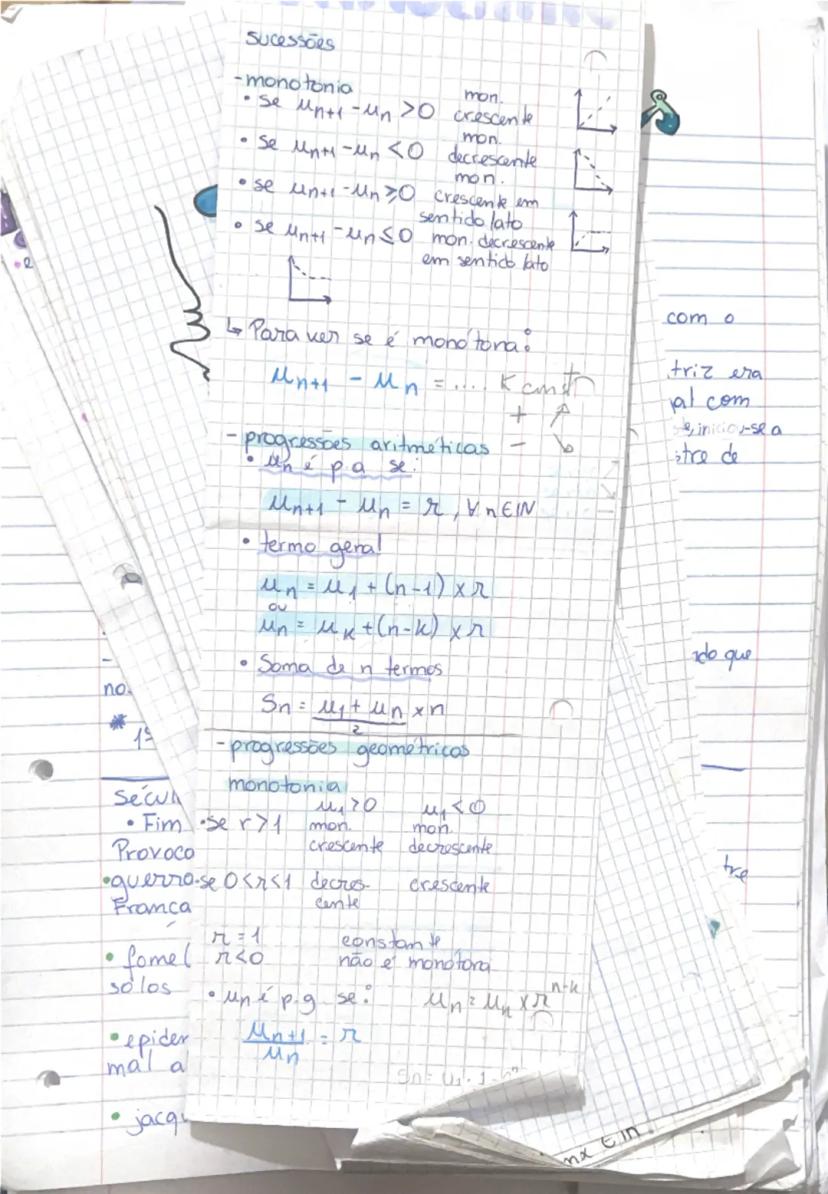 sucessões
-monotonia
• se un+1 - un > 0 mon. crescente
• se un+1 - un < 0 mon. decrescente
• se un+1 - un ≥ 0 mon. crescente em
sentido lato
• se un+1 - un ≤ 0 mon. decrescente
em sentido lato
↳ Para ver se é monótona:
un+1 - un = .... K const
+ ↗
- ↘
- progressões aritméticas
• un é p.a se:
un+1 - un = r, ∀ n ∈ IN
• termo geral
un = u1 + (n-1) x r
ou
un = uk + (n-k) x r
• Soma de n termos
Sn = u1 + un x n
2
- progressões geométricas
monotonia
u1 > 0 u1 < 0
• se r > 1 mon. mon.
crescente decrescente
• se 0 < r < 1 decres- crescente
cente
r = 1 constante
r < 0 não é monótona
• un é p.g se: un = un x r n-k
un+1 = r
un
com o
triz era
al com
, iniciou-se a
stre de
do que
no.
* 1º
sécul
• Fim
Provoco
• guerra
França
tre
• fome
solos
• epider
mal a
• jacqu
nx ∈ IN.